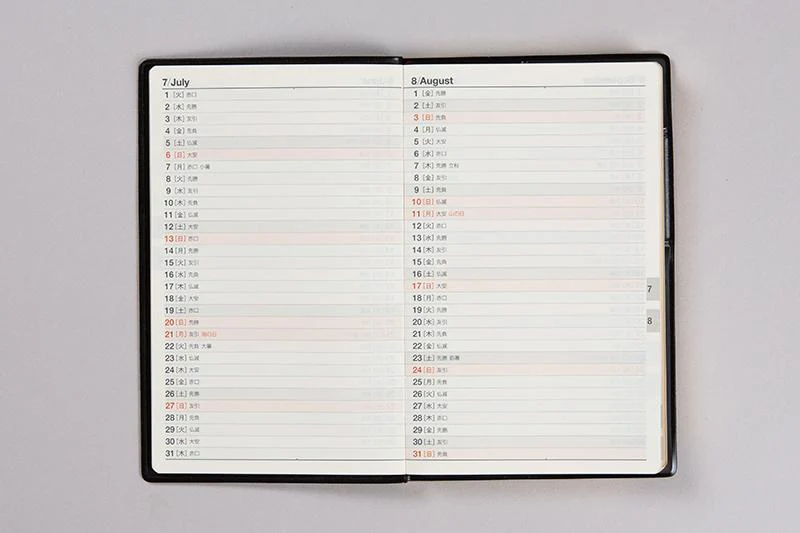 7/July
1 [火] 赤口
2 [水] 先勝
3 [木] 友引
4 [金] 先負
5 [土] 仏滅
6 [日] 大安
7 [月] 赤口 小暑
8 [火] 先勝
9 [水] 友引
10 [木] 先負
11 [金] 仏滅
12 [土] 大安
13 [日] 赤口
14 [月] 先勝
15 [火] 友引
16 [水] 先負
17 [木] 仏滅
18 [金] 大安
19 [土] 赤口
20 [日] 先勝
21 [月] 友引 海の日
22 [火] 先負 大暑
23 [水] 仏滅
24 [木] 大安
25 [金] 赤口
26 [土] 先勝
27 [日] 友引
28 [月] 先負
29 [火] 仏滅
30 [水] 大安
31 [木] 赤口
8/August
1 [金] 先勝
2 [土] 友引
3 [日] 先負
4 [月] 仏滅
5 [火] 大安
6 [水] 赤口
7 [木] 先勝 立秋
8 [金] 友引
9 [土] 先負
10 [日] 仏滅
11 [月] 大安 山の日
12 [火] 赤口
13 [水] 先勝
14 [木] 友引
15 [金] 先負
16 [土] 仏滅
17 [日] 大安
18 [月] 赤口
19 [火] 先勝
20 [水] 友引
21 [木] 先負
22 [金] 仏滅
23 [土] 先勝 処暑
24 [日] 友引
25 [月] 先負
26 [火] 仏滅
27 [水] 大安
28 [木] 赤口
29 [金] 先勝
30 [土] 友引
31 [日] 先負
7
8